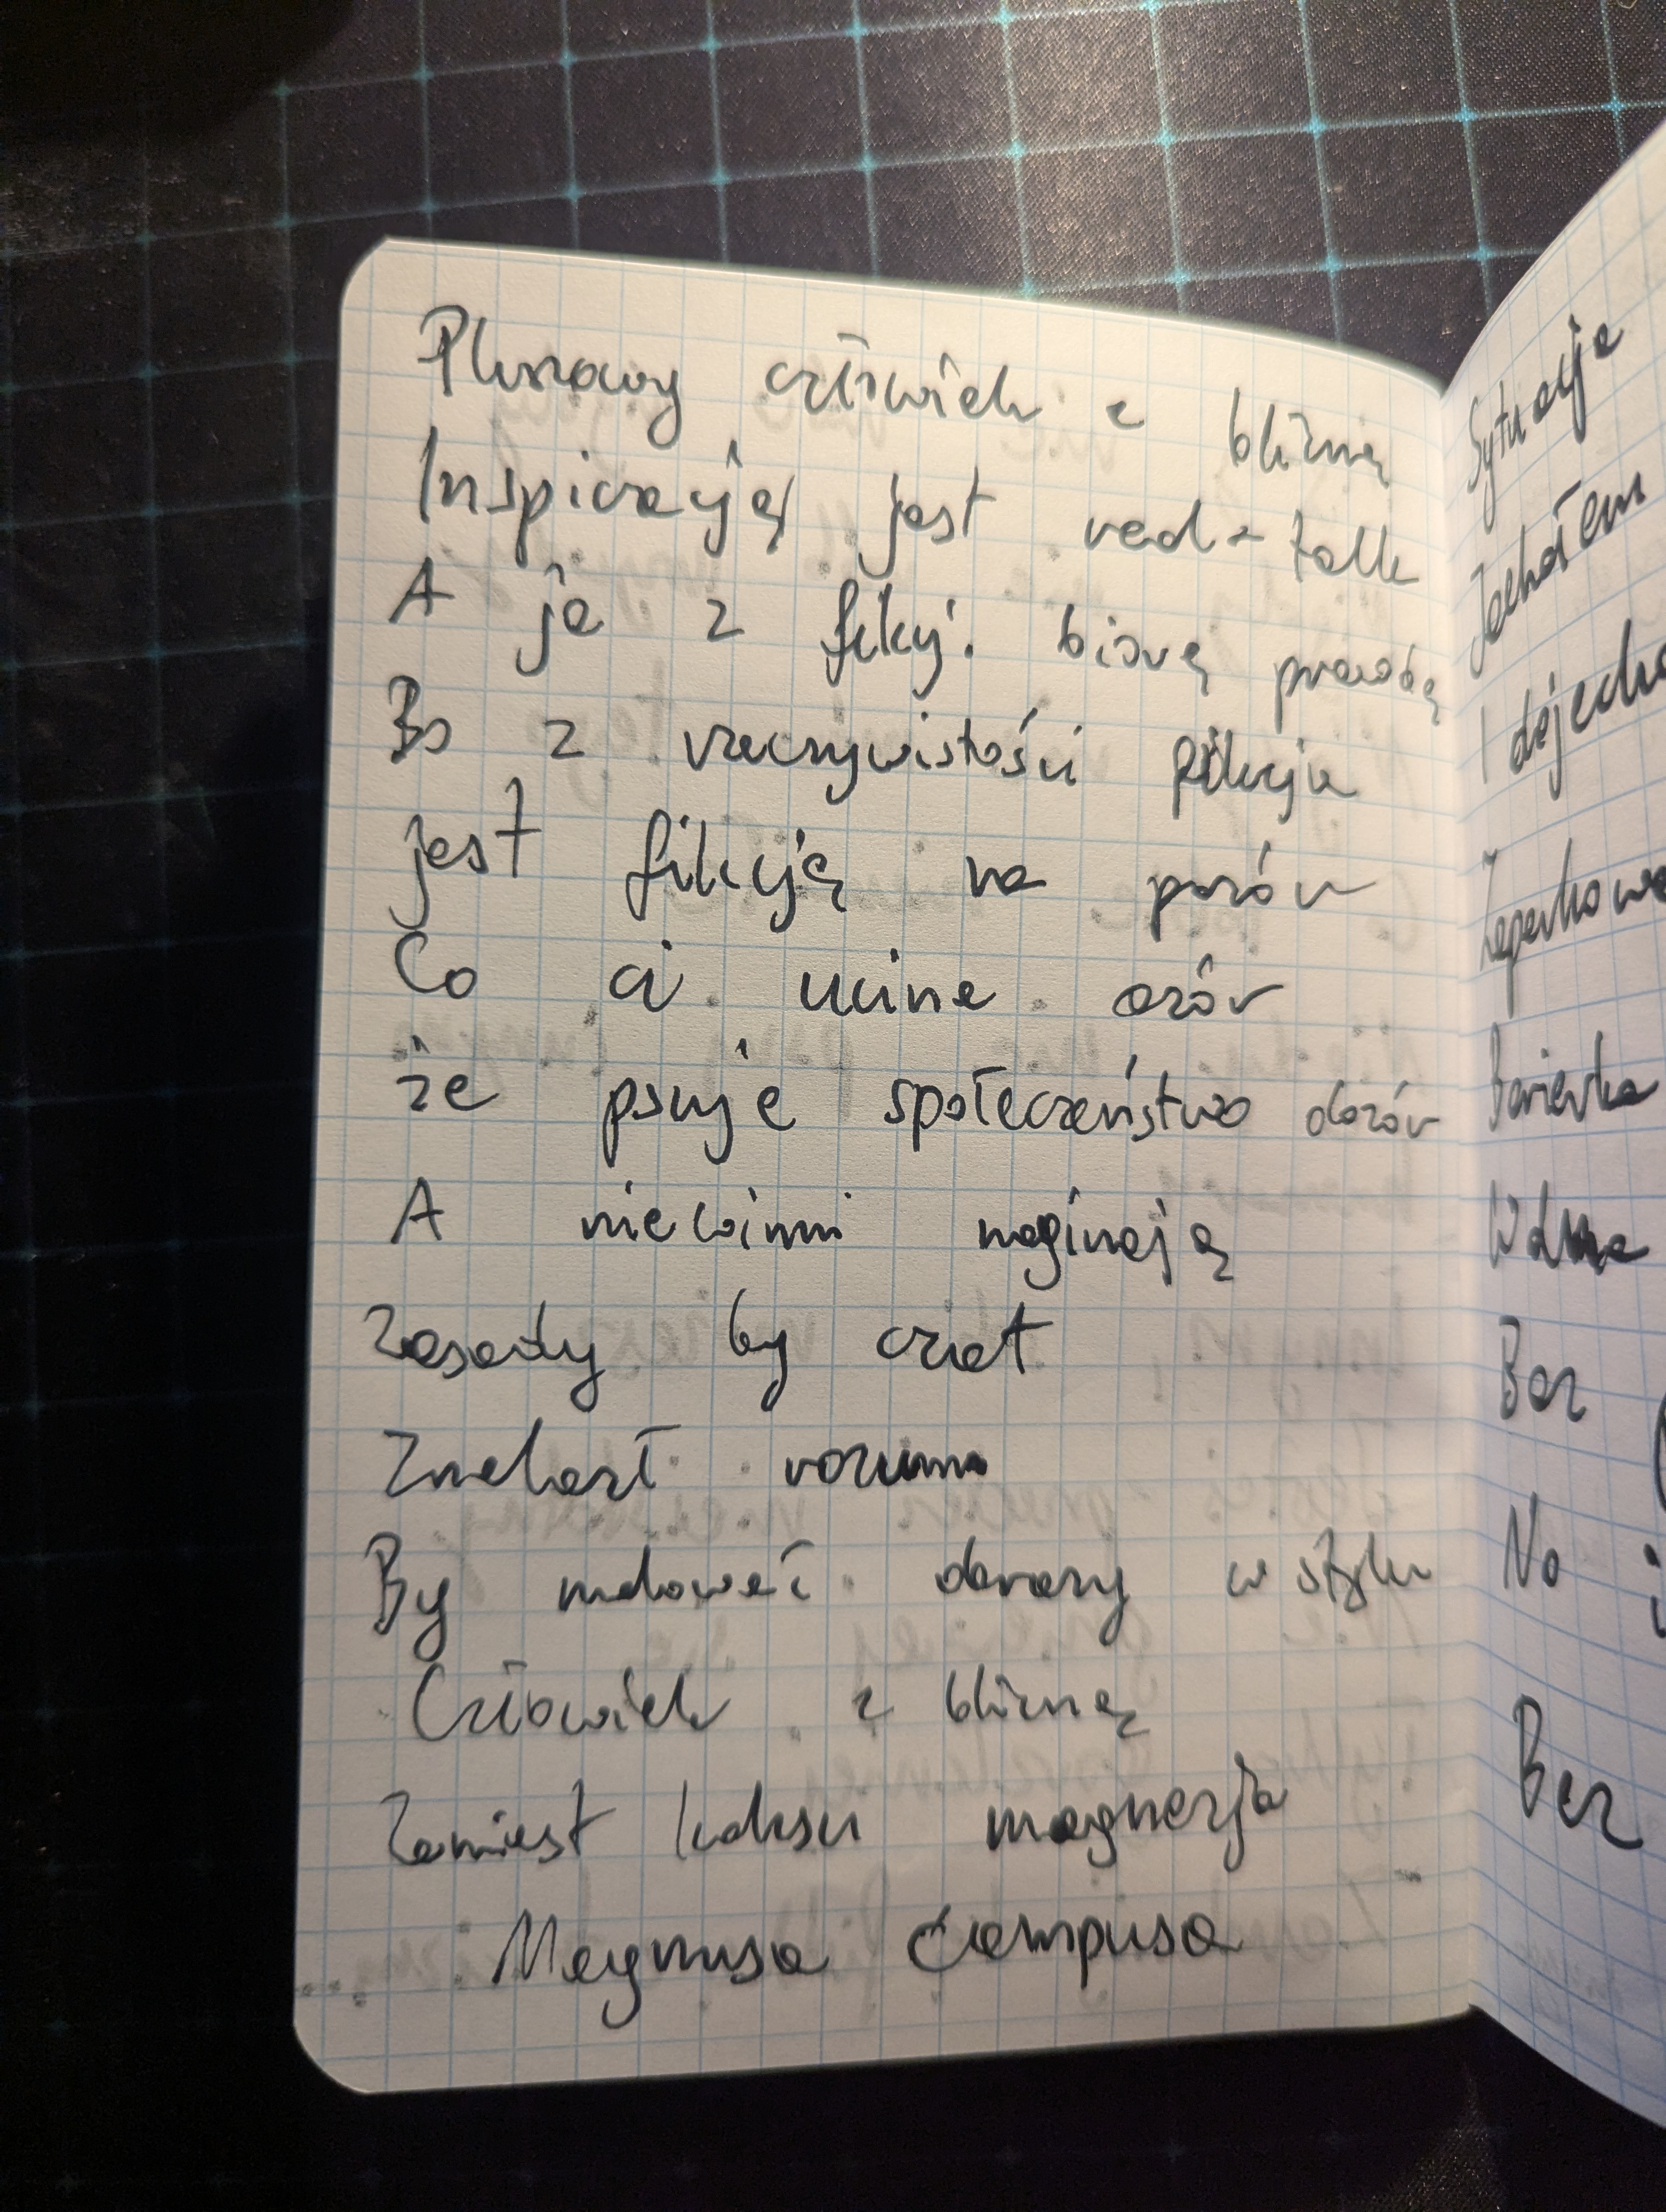 Pluszowy człowiek z blizną
Inspiracją jest red-talk
A ja z fikcji biorę prawdę
Bo z rzeczywistości fikcja
jest fikcją na pozór
Co ci utnie ozór
że psuje społeczeństwo dozór
A niewinni naginają
Zasady by czat
Znalazł rozum
By malować obrazy w stylu
Człowiek z blizną
Zamiast koksu magnezja
Magnusa Campusa
Sytuacja
Jechałem
I dojecha
Zaparkowa
Barierka
Bez
No i
Bez